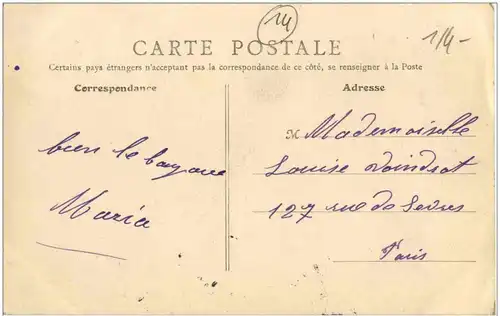 14
1/4-
CARTE POSTALE
Certains pays étrangers n'acceptant pas la correspondance de ce côté, se renseigner à la Poste
Correspondance
Adresse
bien le
Maria
M Mademoiselle
Louise
127 rue de Sevres
Paris